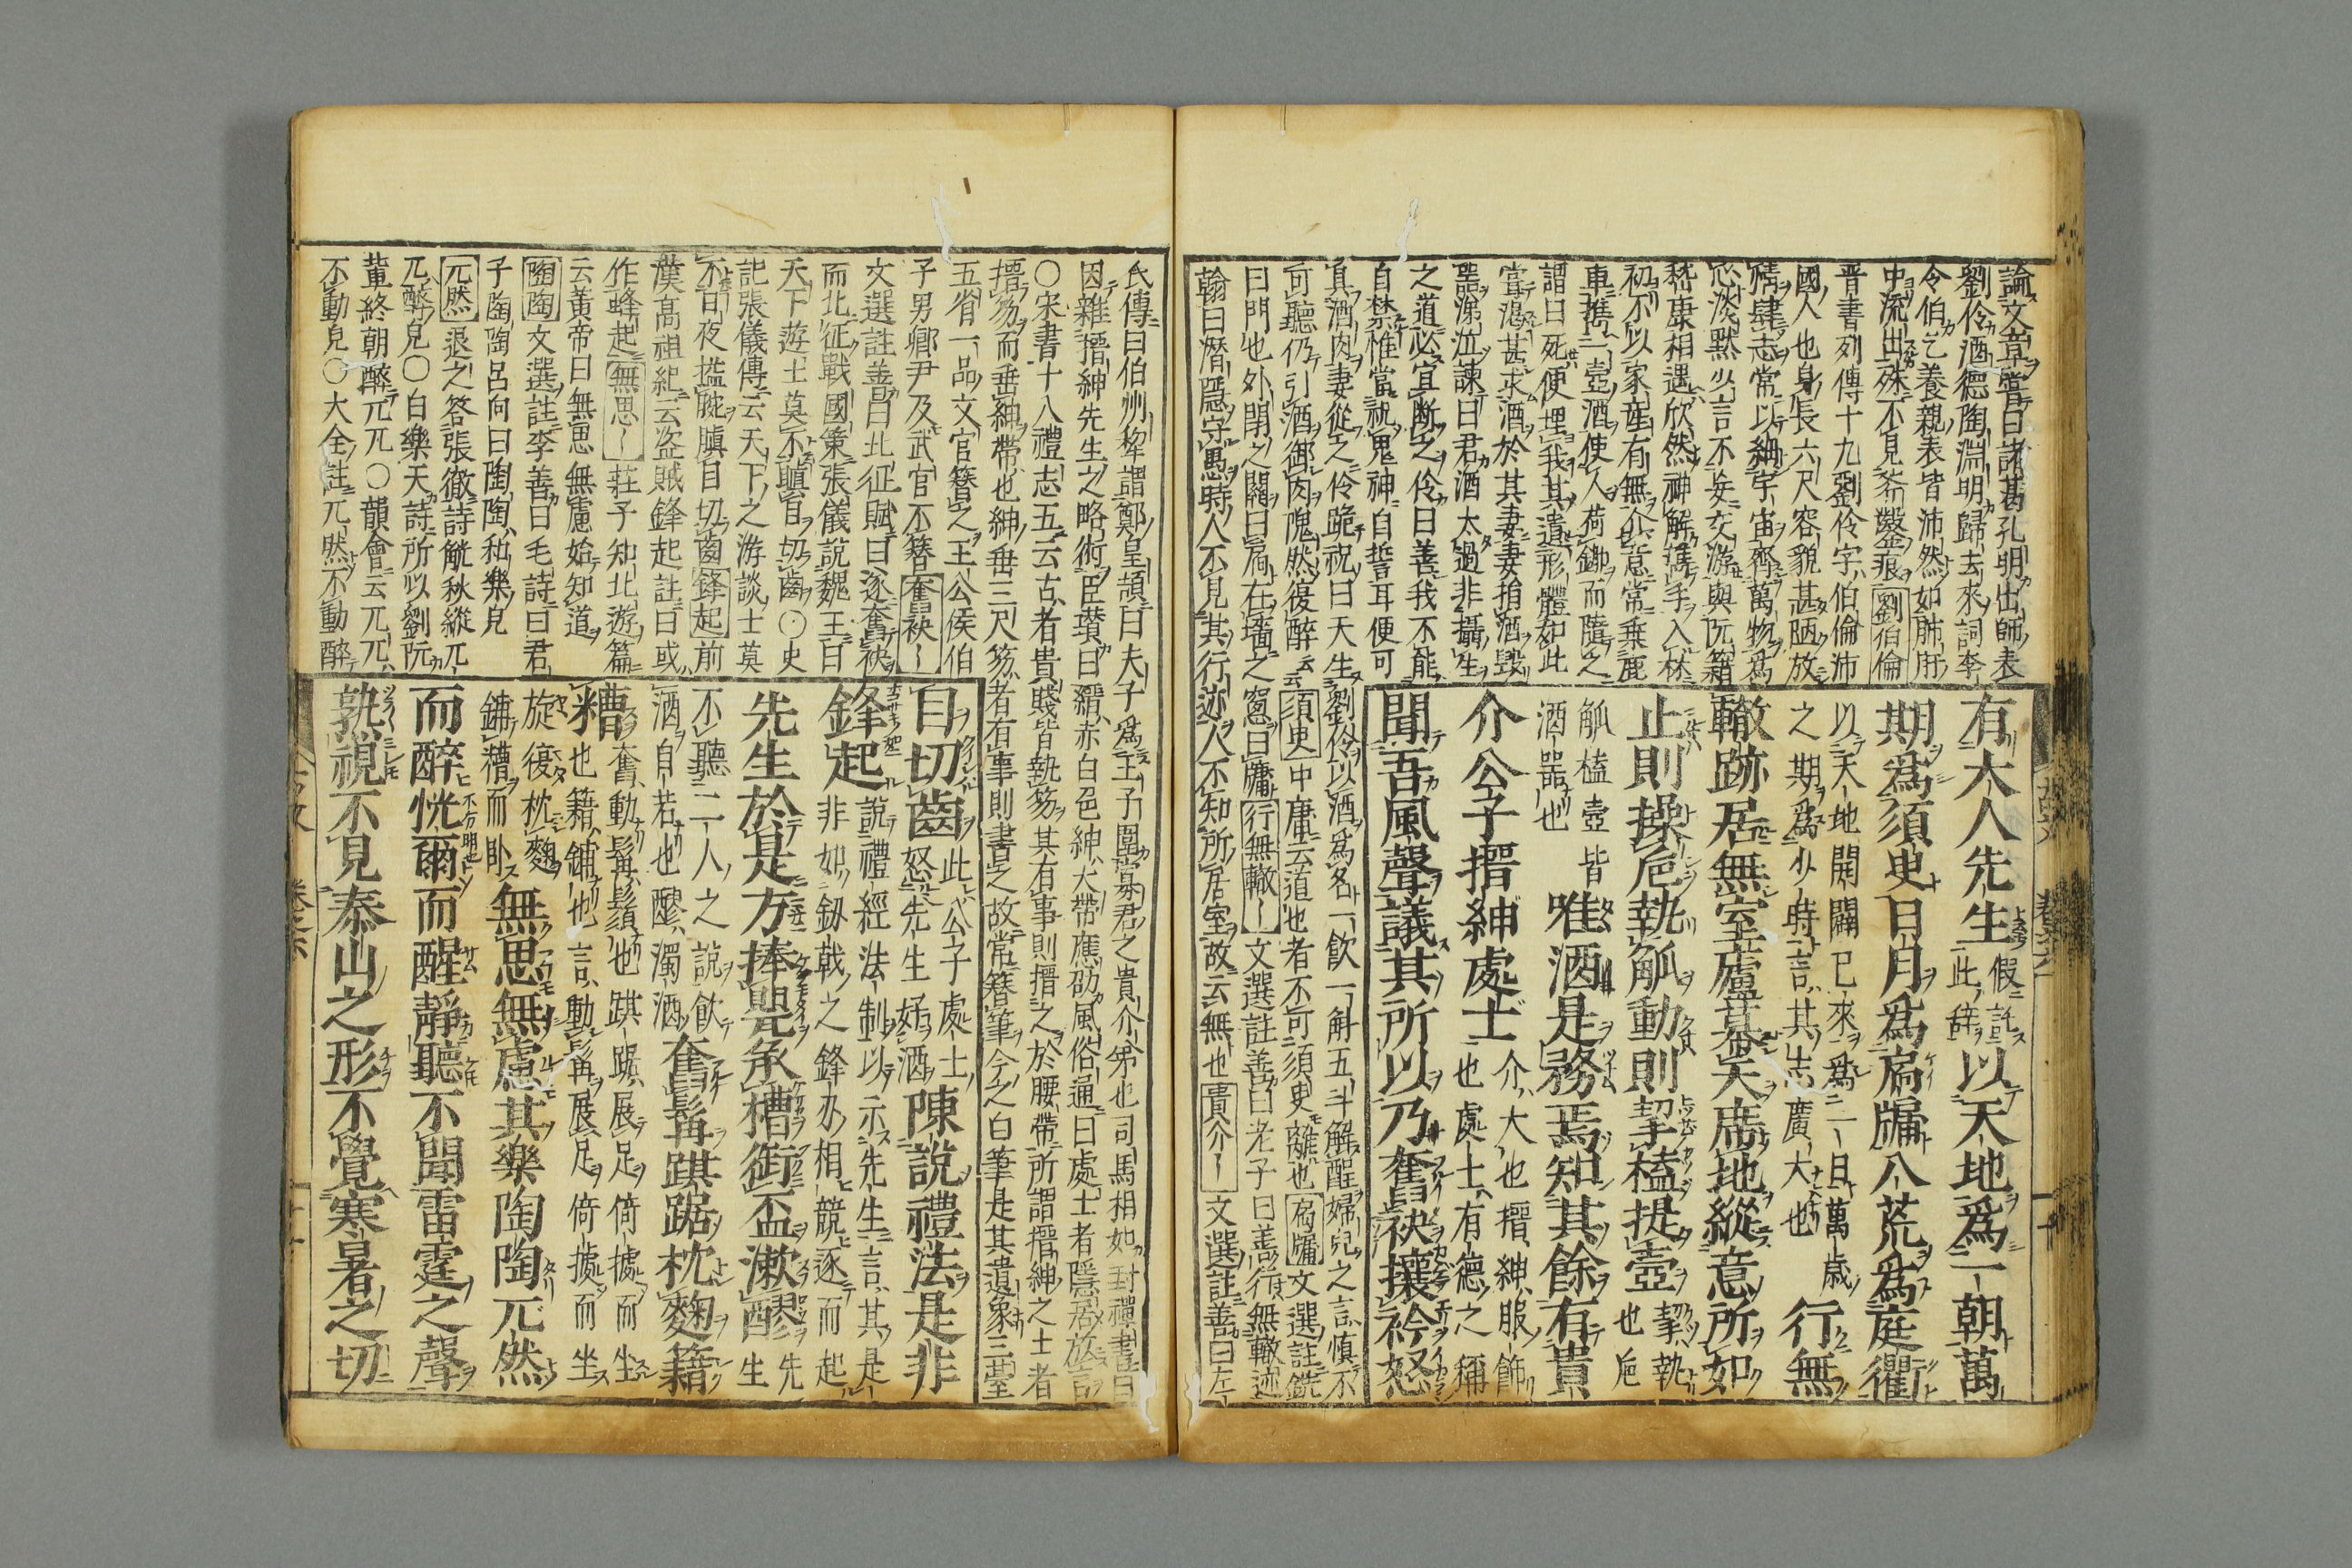 論文章嘗曰諸葛孔明出師表
劉伶酒德陶淵明歸去來詞李
令伯乞養親表皆沛然如肺肝
中流出殊不見斧鑿痕劉伯倫
晋書列傳十九劉伶字伯倫沛
國人也身長六尺容貌甚陋放
情肆志常以細宇宙齊萬物爲
心淡默少言不妄交游與阮籍
嵆康相遇欣然神解携手入林
初不以家產有無介意常乗鹿
車携一壺酒使人荷鍤而隨之
謂曰死便埋我其遺形體如此
嘗渇甚求酒於其妻妻捐酒毀
噐涕泣諫曰君酒太過非攝生
之道必宜断之伶曰善我不能
自禁惟當祝鬼神自誓耳便可
具酒肉妻從之伶跪祝曰天生劉伶以酒爲名一飲一斛五斗解酲婦兒之言愼不
可聽仍引酒御肉隗然復醉云云須臾中庸云道也者不可須臾離也扃牖文選註銑
曰門也外閉之關曰扃在墻之窻曰牖行無轍〡文選註善曰老子曰善行無轍迹
翰曰潛隱守愚時人不見其行迹人不知所居室故云無也貴介〡文選註善曰左
有大人先生假託此辞以天地爲一朝萬
期爲須臾日月爲扃牖八荒爲庭衢
以天地開闢已來爲一日萬歳
之期爲少時言其志廣大也行無
轍跡居無室廬幕天席地縱意所如
止則操巵執觚動則挈榼提壺挈執也巵
觚榼壺皆酒器也唯酒是務焉知其餘有貴
介公子搢紳處士介大也搢紳服飾也處士有德之稱
聞吾風聲議其所以乃奮袂攘衿怒
氏傳曰伯州犂謂鄭皇頡曰夫子爲王子圍寡君之貴介弟也司馬相如封禪書曰
因雜搢紳先生之略術臣瓉曰縉赤白色紳大帶應劭風俗通曰處士者隱居放言
○宋書十八禮志五云古者貴賤皆執笏其有事則搢之於腰帶所謂搢紳之士者
搢笏而垂紳帶也紳垂三尺笏者有事則書之故常簪筆今之白筆是其遺象三臺
五省一品文官簪之王公侯伯
子男卿尹及武官不簪奮袂〡
文選註善曰北征賦曰遂奮袂
而北征戰國策張儀說魏王曰
天下遊士莫不瞋目切齒○史
記張儀傳云天下之游談士莫
不日夜搤腕瞋目切齒鋒起前
漢髙祖紀云盗賊鋒起註曰或
作蜂起無思〡莊子知北游篇
云黄帝曰無思無慮始知道
陶陶文選註李善曰毛詩曰君
子陶陶呂向曰陶陶和樂皃
兀然退之答張徹詩觥秋縱兀
兀醉皃○白樂天詩所以劉阮
輩終朝醉兀兀○韻會云兀兀
不動皃○大全註兀然不動醉
目切齒此公子處士怒先生好酒陳說禮法是非
鋒起說禮經法制以示先生言其是非如釼戟之鋒刃相競逐而起
先生於是方捧甖承槽銜盃漱醪先生
不聽二人之說飲酒自若也醪濁酒奮髯踑踞枕麴籍
糟奮動髯鬚也踑踞展足倚據而坐也籍鋪也言動髯展足倚據而坐
旋復枕麴鋪糟而卧無思無慮其樂陶陶兀然
而醉恍爾而醒靜聽不聞雷霆之聲
孰視不見泰山之形不覺寒暑之切